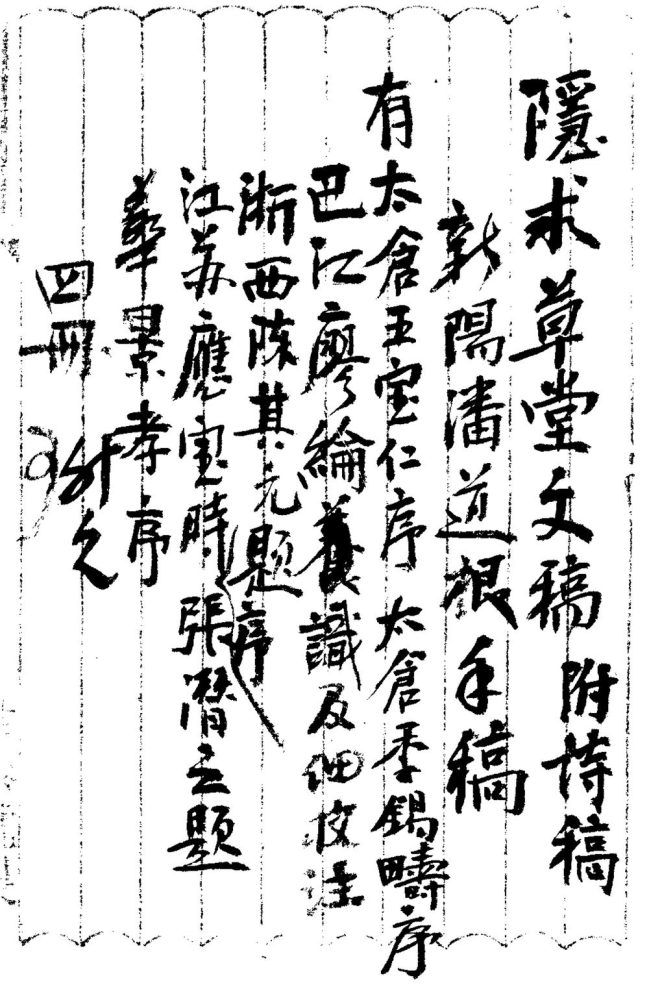 隱求草堂文稿 附詩稿
新陽潘道根手稿
有太倉王寶仁序 太倉季錫疇序
巴江廖綸養識及細校注
浙西陈其元題序
江苏應宝時 張瀠之題
葉景孝序
四冊